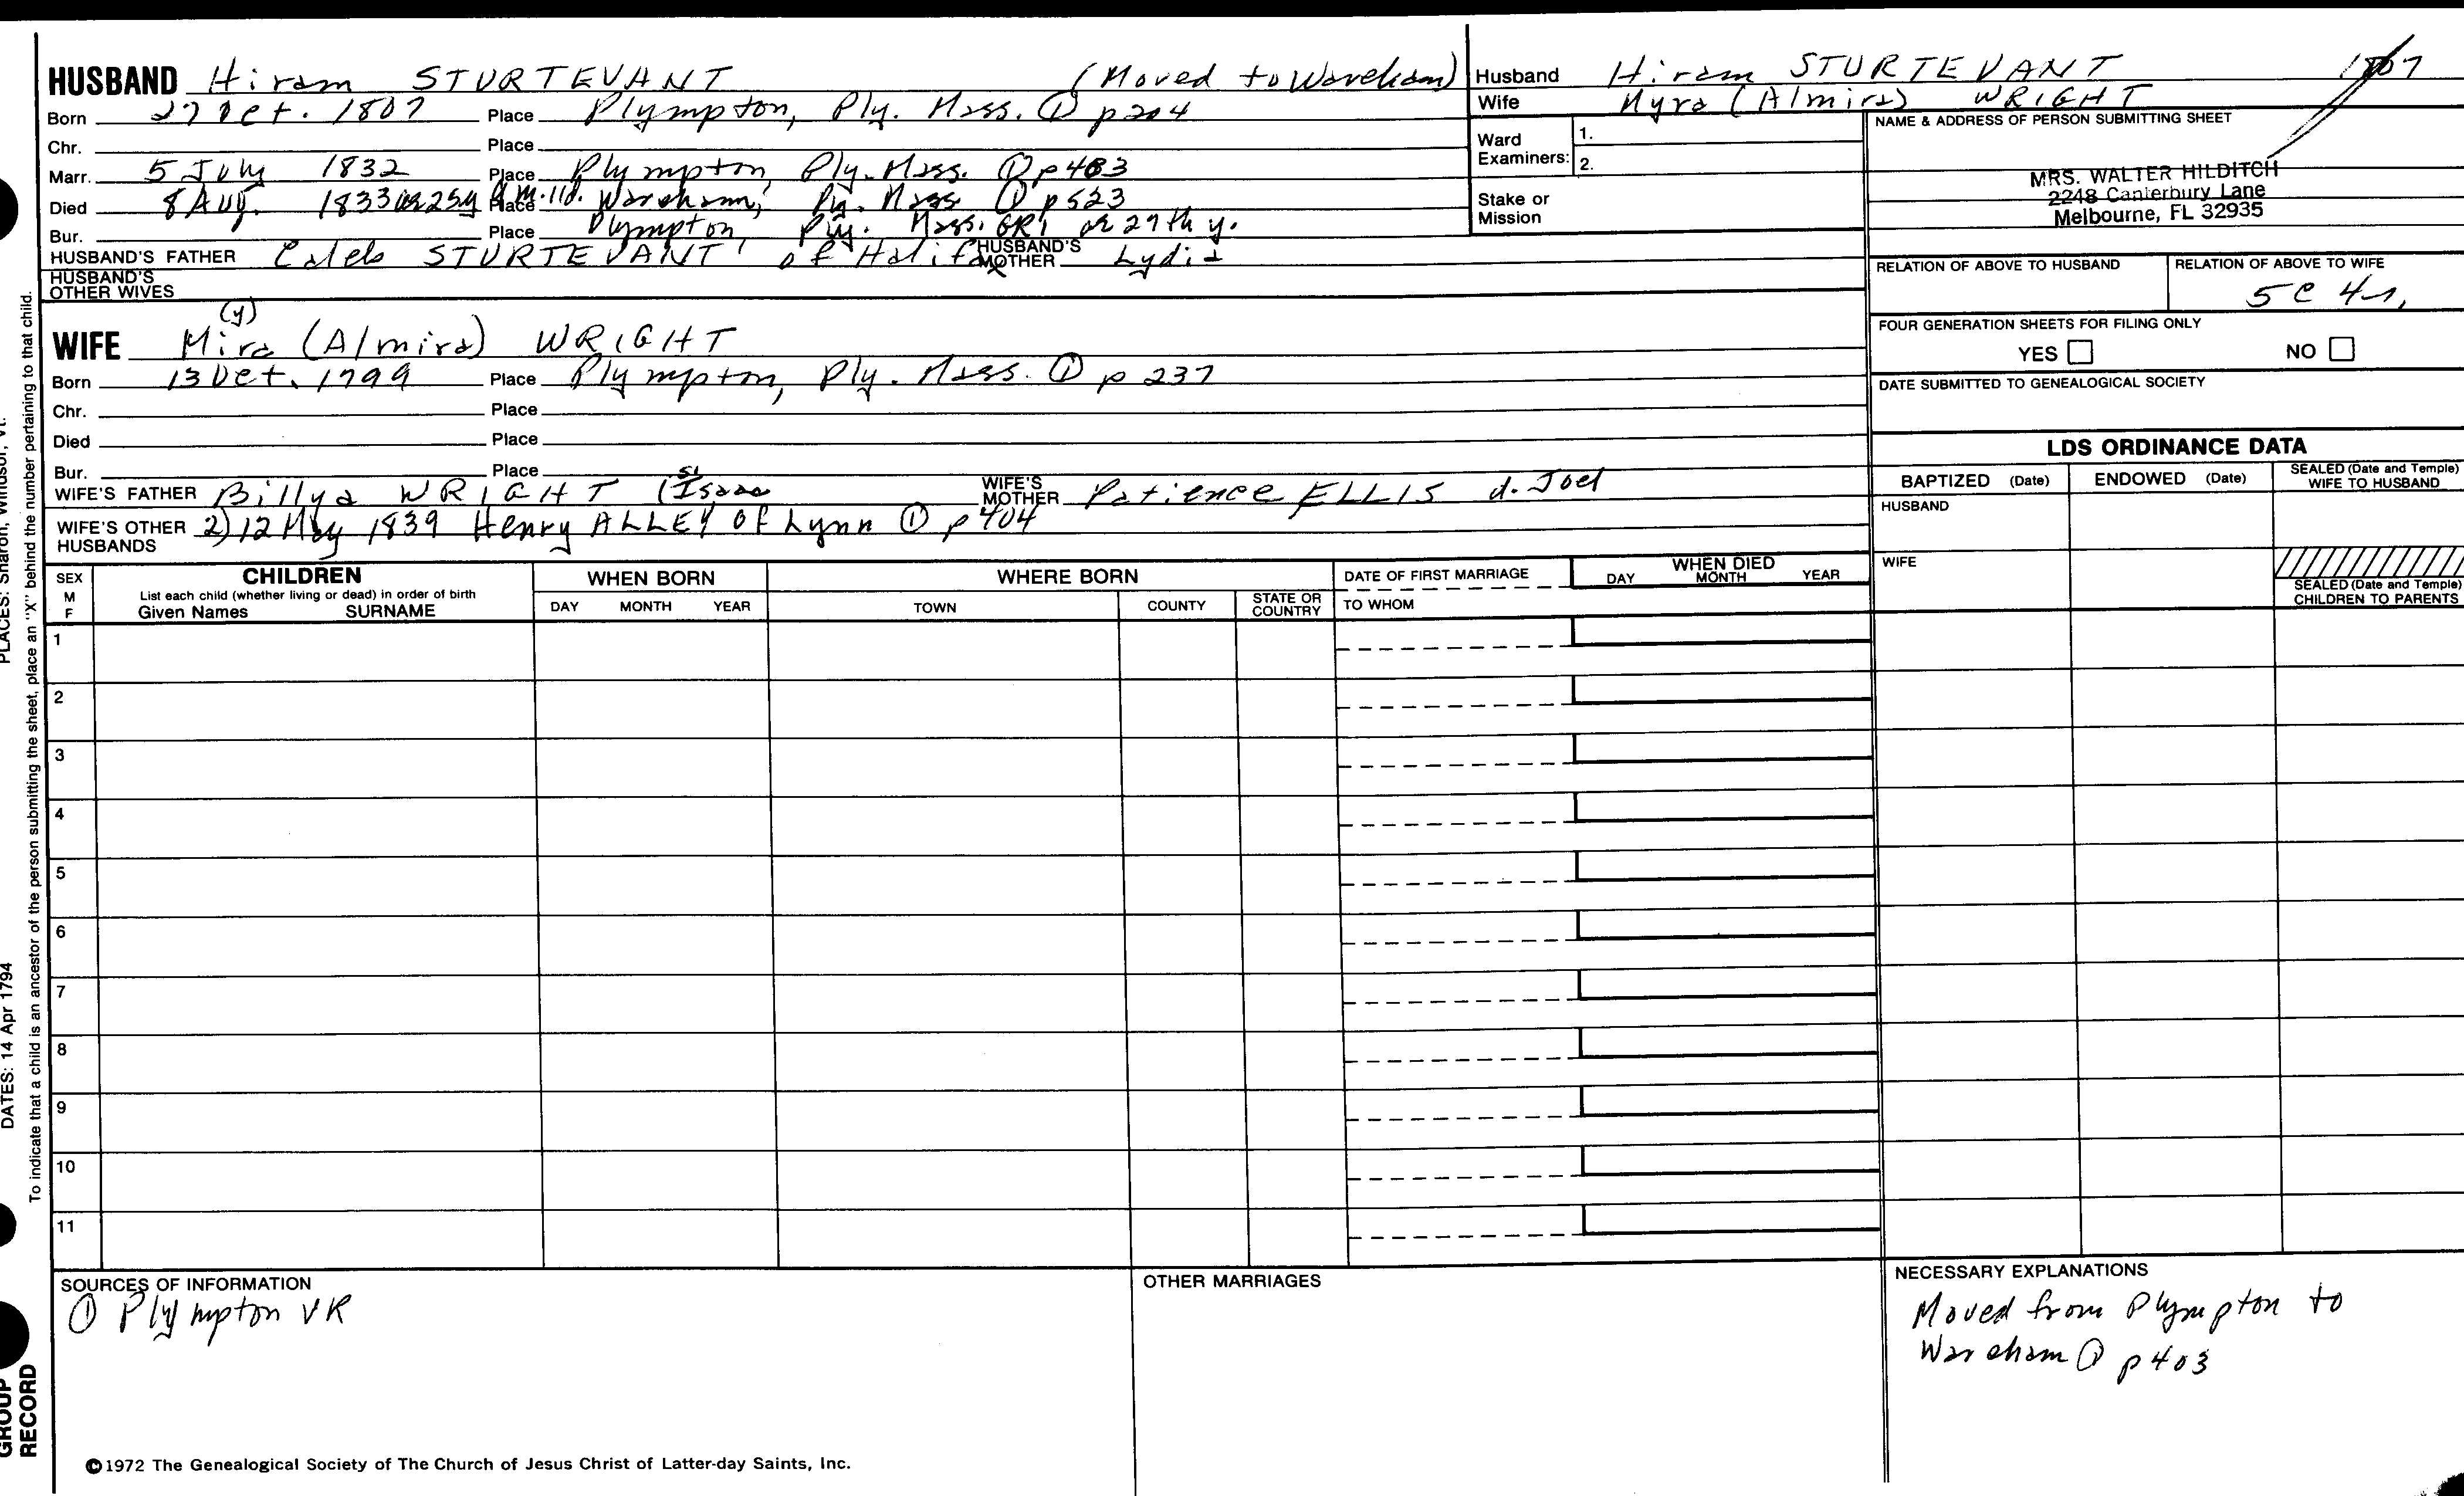 HUSBAND Hiram STURTEVANT (Moved to Wareham)
Born 27 Oct. 1807 Place Plympton, Ply. Mass. ① p204
Chr. Place
Marr. 5 July 1832 Place Plympton, Ply. Mass. ① p403
Died 8 Aug. 1833 ae 25y 9m. 11d. Place Wareham, Ply. Mass ① p523
Bur. Place Plympton, Ply. Mass. GR1 ae 27th y.
HUSBAND'S FATHER Caleb STURTEVANT of Halifax HUSBAND'S MOTHER Lydia
HUSBAND'S OTHER WIVES
(y)
WIFE Mira (Almira) WRIGHT
Born 13 Oct. 1799 Place Plympton, Ply. Mass. ① p 237
Chr. Place
Died Place
Bur. Place
WIFE'S FATHER Billya WRIGHT (Isaac WIFE'S MOTHER Patience ELLIS d. Joel
WIFE'S OTHER HUSBANDS 2) 12 May 1839 Henry ALLEY of Lynn ① p404
Husband Hiram STURTEVANT 1807
Wife Myra (Almira) WRIGHT
Ward Examiners: 1.
2.
Stake or Mission
NAME & ADDRESS OF PERSON SUBMITTING SHEET
MRS. WALTER HILDITCH
2248 Canterbury Lane
Melbourne, FL 32935
RELATION OF ABOVE TO HUSBAND RELATION OF ABOVE TO WIFE
5C 4r,
FOUR GENERATION SHEETS FOR FILING ONLY
YES NO
DATE SUBMITTED TO GENEALOGICAL SOCIETY
LDS ORDINANCE DATA
BAPTIZED (Date) ENDOWED (Date) SEALED (Date and Temple) WIFE TO HUSBAND
HUSBAND
WIFE
SEALED (Date and Temple) CHILDREN TO PARENTS
SEX M F
CHILDREN
List each child (whether living or dead) in order of birth
Given Names SURNAME
WHEN BORN
DAY MONTH YEAR
WHERE BORN
TOWN COUNTY STATE OR COUNTRY
DATE OF FIRST MARRIAGE
TO WHOM
WHEN DIED
DAY MONTH YEAR
1
2
3
4
5
6
7
8
9
10
11
SOURCES OF INFORMATION
① Plympton VR
OTHER MARRIAGES
NECESSARY EXPLANATIONS
Moved from Plympton to
Wareham ① p403
©1972 The Genealogical Society of The Church of Jesus Christ of Latter-day Saints, Inc.
To indicate that a child is an ancestor of the person submitting the sheet, place an "X" behind the number pertaining to that child.
DATES: 14 Apr 1794 PLACES: Sharon, Windsor, Vt.
GROUP
RECORD